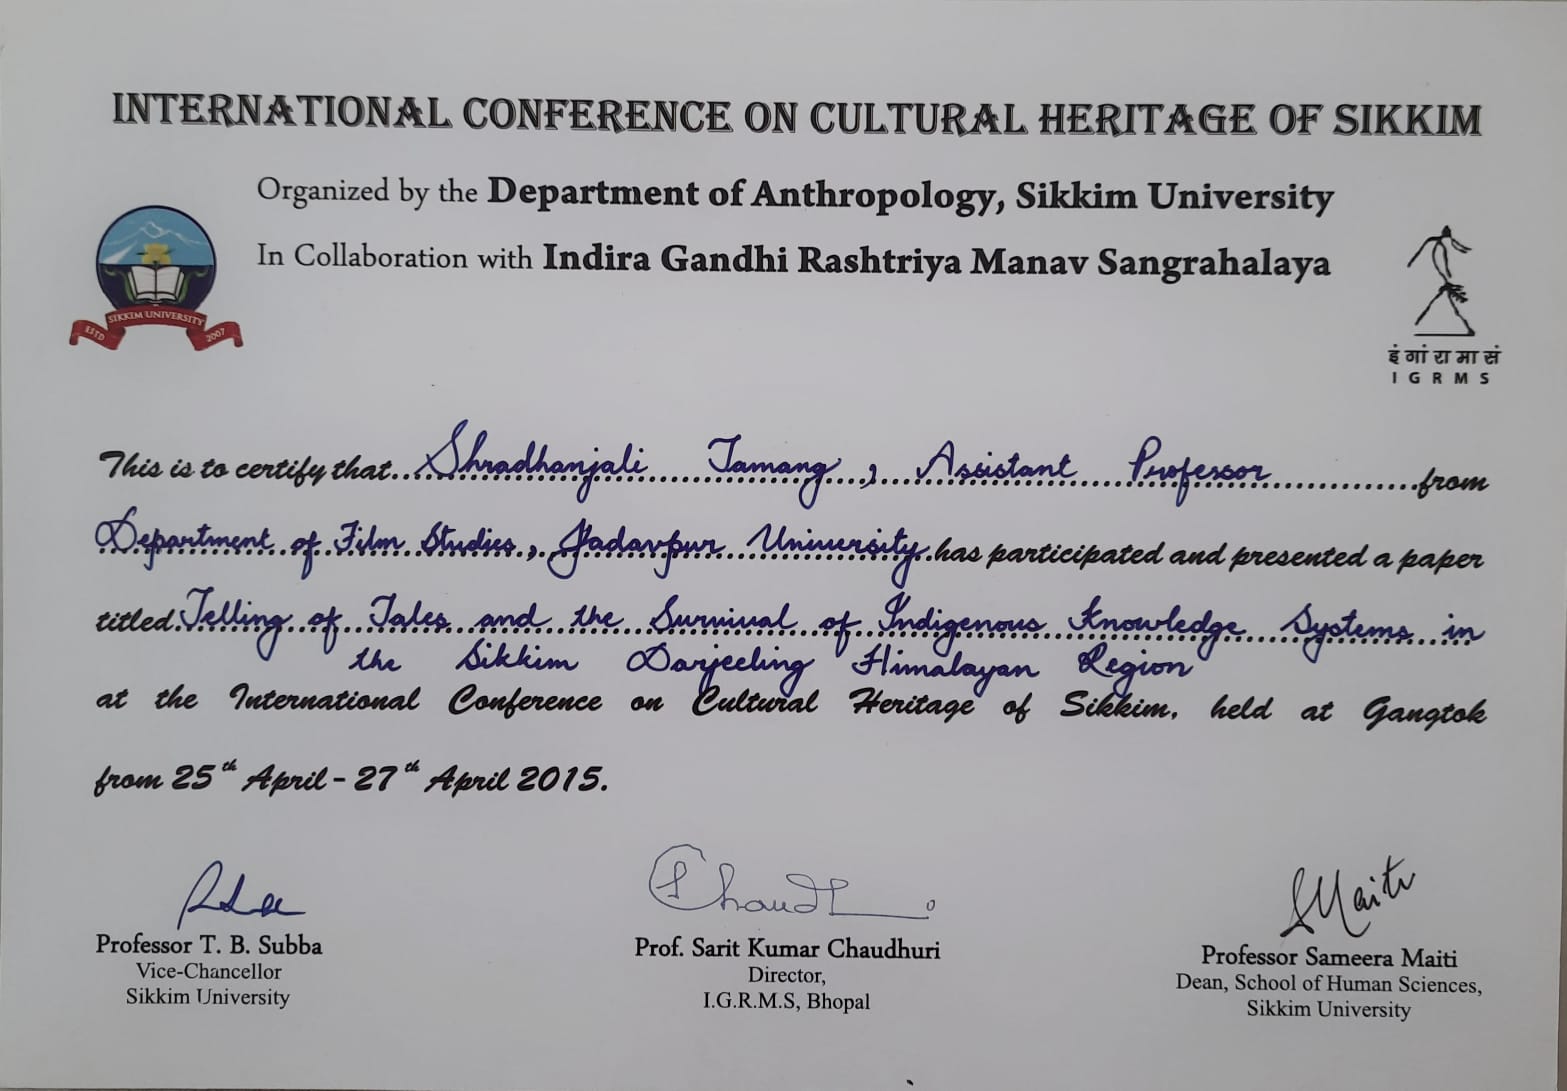 INTERNATIONAL CONFERENCE ON CULTURAL HERITAGE OF SIKKIM
Organized by the Department of Anthropology, Sikkim University
In Collaboration with Indira Gandhi Rashtriya Manav Sangrahalaya
SIKKIM UNIVERSITY
ESTD 2007
इं गां रा मा सं
I G R M S
This is to certify that Shradhanjali Tamang, Assistant Professor from
Department of Film Studies, Jadavpur University has participated and presented a paper
titled Telling of Tales and the Survival of Indigenous Knowledge Systems in
the Sikkim Darjeeling Himalayan Region
at the International Conference on Cultural Heritage of Sikkim, held at Gangtok
from 25th April - 27th April 2015.
SMaiti
Professor T. B. Subba
Vice-Chancellor
Sikkim University
Prof. Sarit Kumar Chaudhuri
Director,
I.G.R.M.S, Bhopal
Professor Sameera Maiti
Dean, School of Human Sciences,
Sikkim University